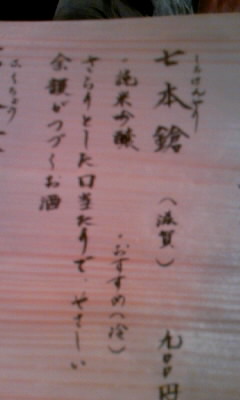 しちほんやり
七本鎗 (滋賀) 九百円
・純米吟醸 ・おすすめ(冷)
さらりとした口当たりで、やさしい
余韻がつづくお酒
ふくちょう